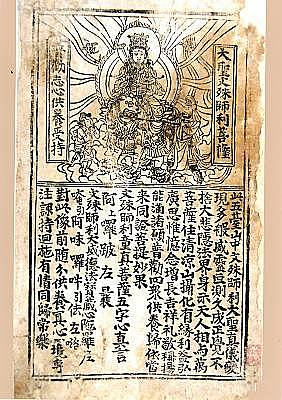 大聖文殊師利菩薩
普勸志心供養受持
此五臺山中文殊師利大聖真儀變
現多般威靈叵測久成正覺不
捨大悲隱法界身示天人相與萬
菩薩住清涼山攝化有緣利益弘
廣思惟憶念增長吉祥禮敬稱揚
能滿諸願普勸四眾供養歸依當
來同證菩提妙果
文殊師利童真菩薩五字心真言
阿上囉跛左曩
文殊師利大威德法寶藏心陀羅尼
唵引阿味囉吽引佉左咯
對此像前隨分供養冀心一境專
注課持迴施有情同歸常樂